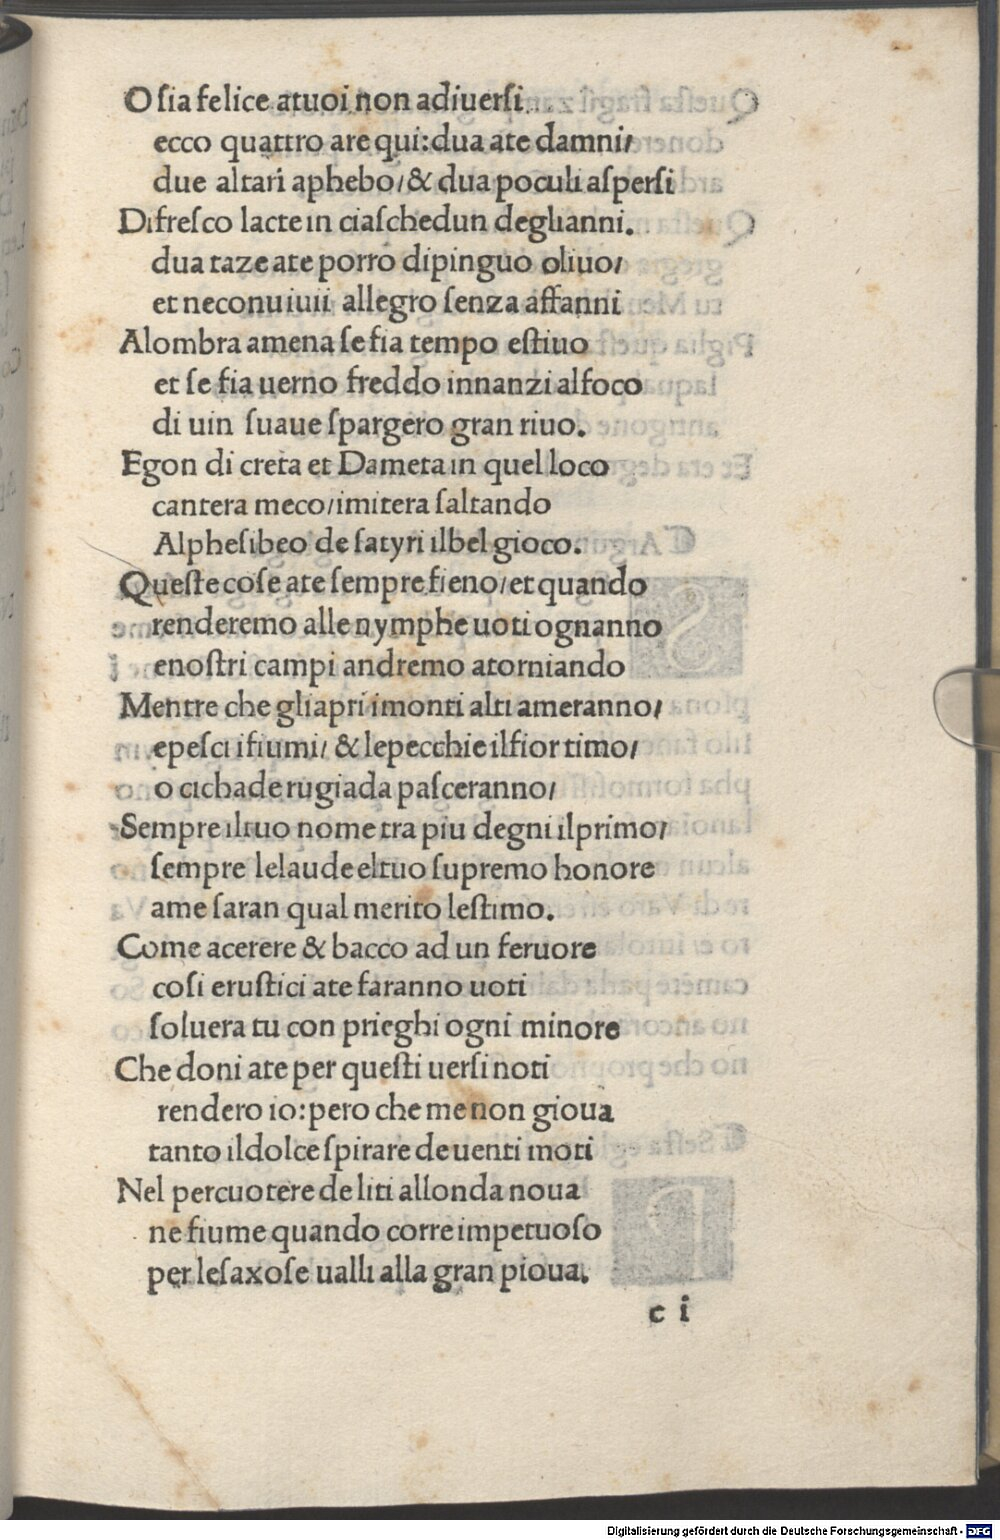 O ſia felice atuoi non adiuerſi
ecco quattro are qui:dua ate damni/
due altari aphebo/& dua poculi aſperſi
Difreſco lacte in ciaſchedun deglianni.
dua taze ate porro dipinguo oliuo/
et neconuiuii allegro ſenza affanni
Alombra amena ſe fia tempo eſtiuo
et ſe fia uerno freddo innanzi alfoco
di uin ſuaue ſpargero gran riuo.
Egon di creta et Dameta in quel loco
cantera meco/imitera ſaltando
Alpheſibeo de ſatyri ilbel gioco.
Queſte coſe ate ſempre fieno/et quando
renderemo alle nymphe uoti ognanno
enoſtri campi andremo atorniando
Mentre che gliapri imonti alti ameranno/
epeſci ifiumi/ & lepecchie ilfior timo/
o cichade rugiada paſceranno/
Sempre iltuo nome tra piu degni ilprimo/
ſempre lelaude eltuo ſupremo honore
ame ſaran qual merito leſtimo.
Come acerere & bacco ad un feruore
coſi eruſtici ate faranno uoti
ſoluera tu con prieghi ogni minore
Che doni ate per queſti uerſi noti
rendero io:pero che me non gioua
tanto ildolce ſpirare de uenti moti
Nel percuotere de liti allonda noua
ne fiume quando corre impetuoſo
per leſaxoſe ualli alla gran pioua.
c i
Digitalisierung gefördert durch die Deutsche Forschungsgemeinschaft - DFG